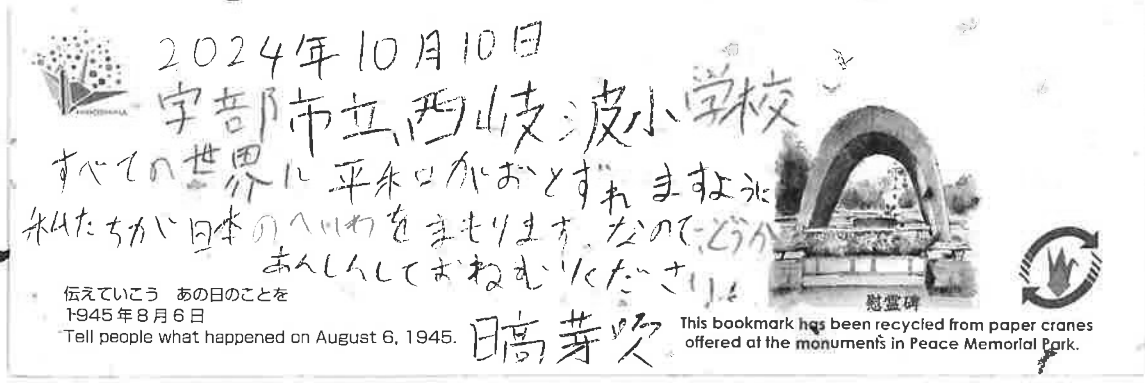 2024年10月10日
宇部市立西岐波小学校
すべての世界に平和がおとずれますように
私たちが日本のへいわをまもります。なので、どうか
あんしんしておねむりください。
日高芽咲
伝えていこう あの日のことを
1945年8月6日
Tell people what happened on August 6, 1945.
慰霊碑
This bookmark has been recycled from paper cranes
offered at the monuments in Peace Memorial Park.